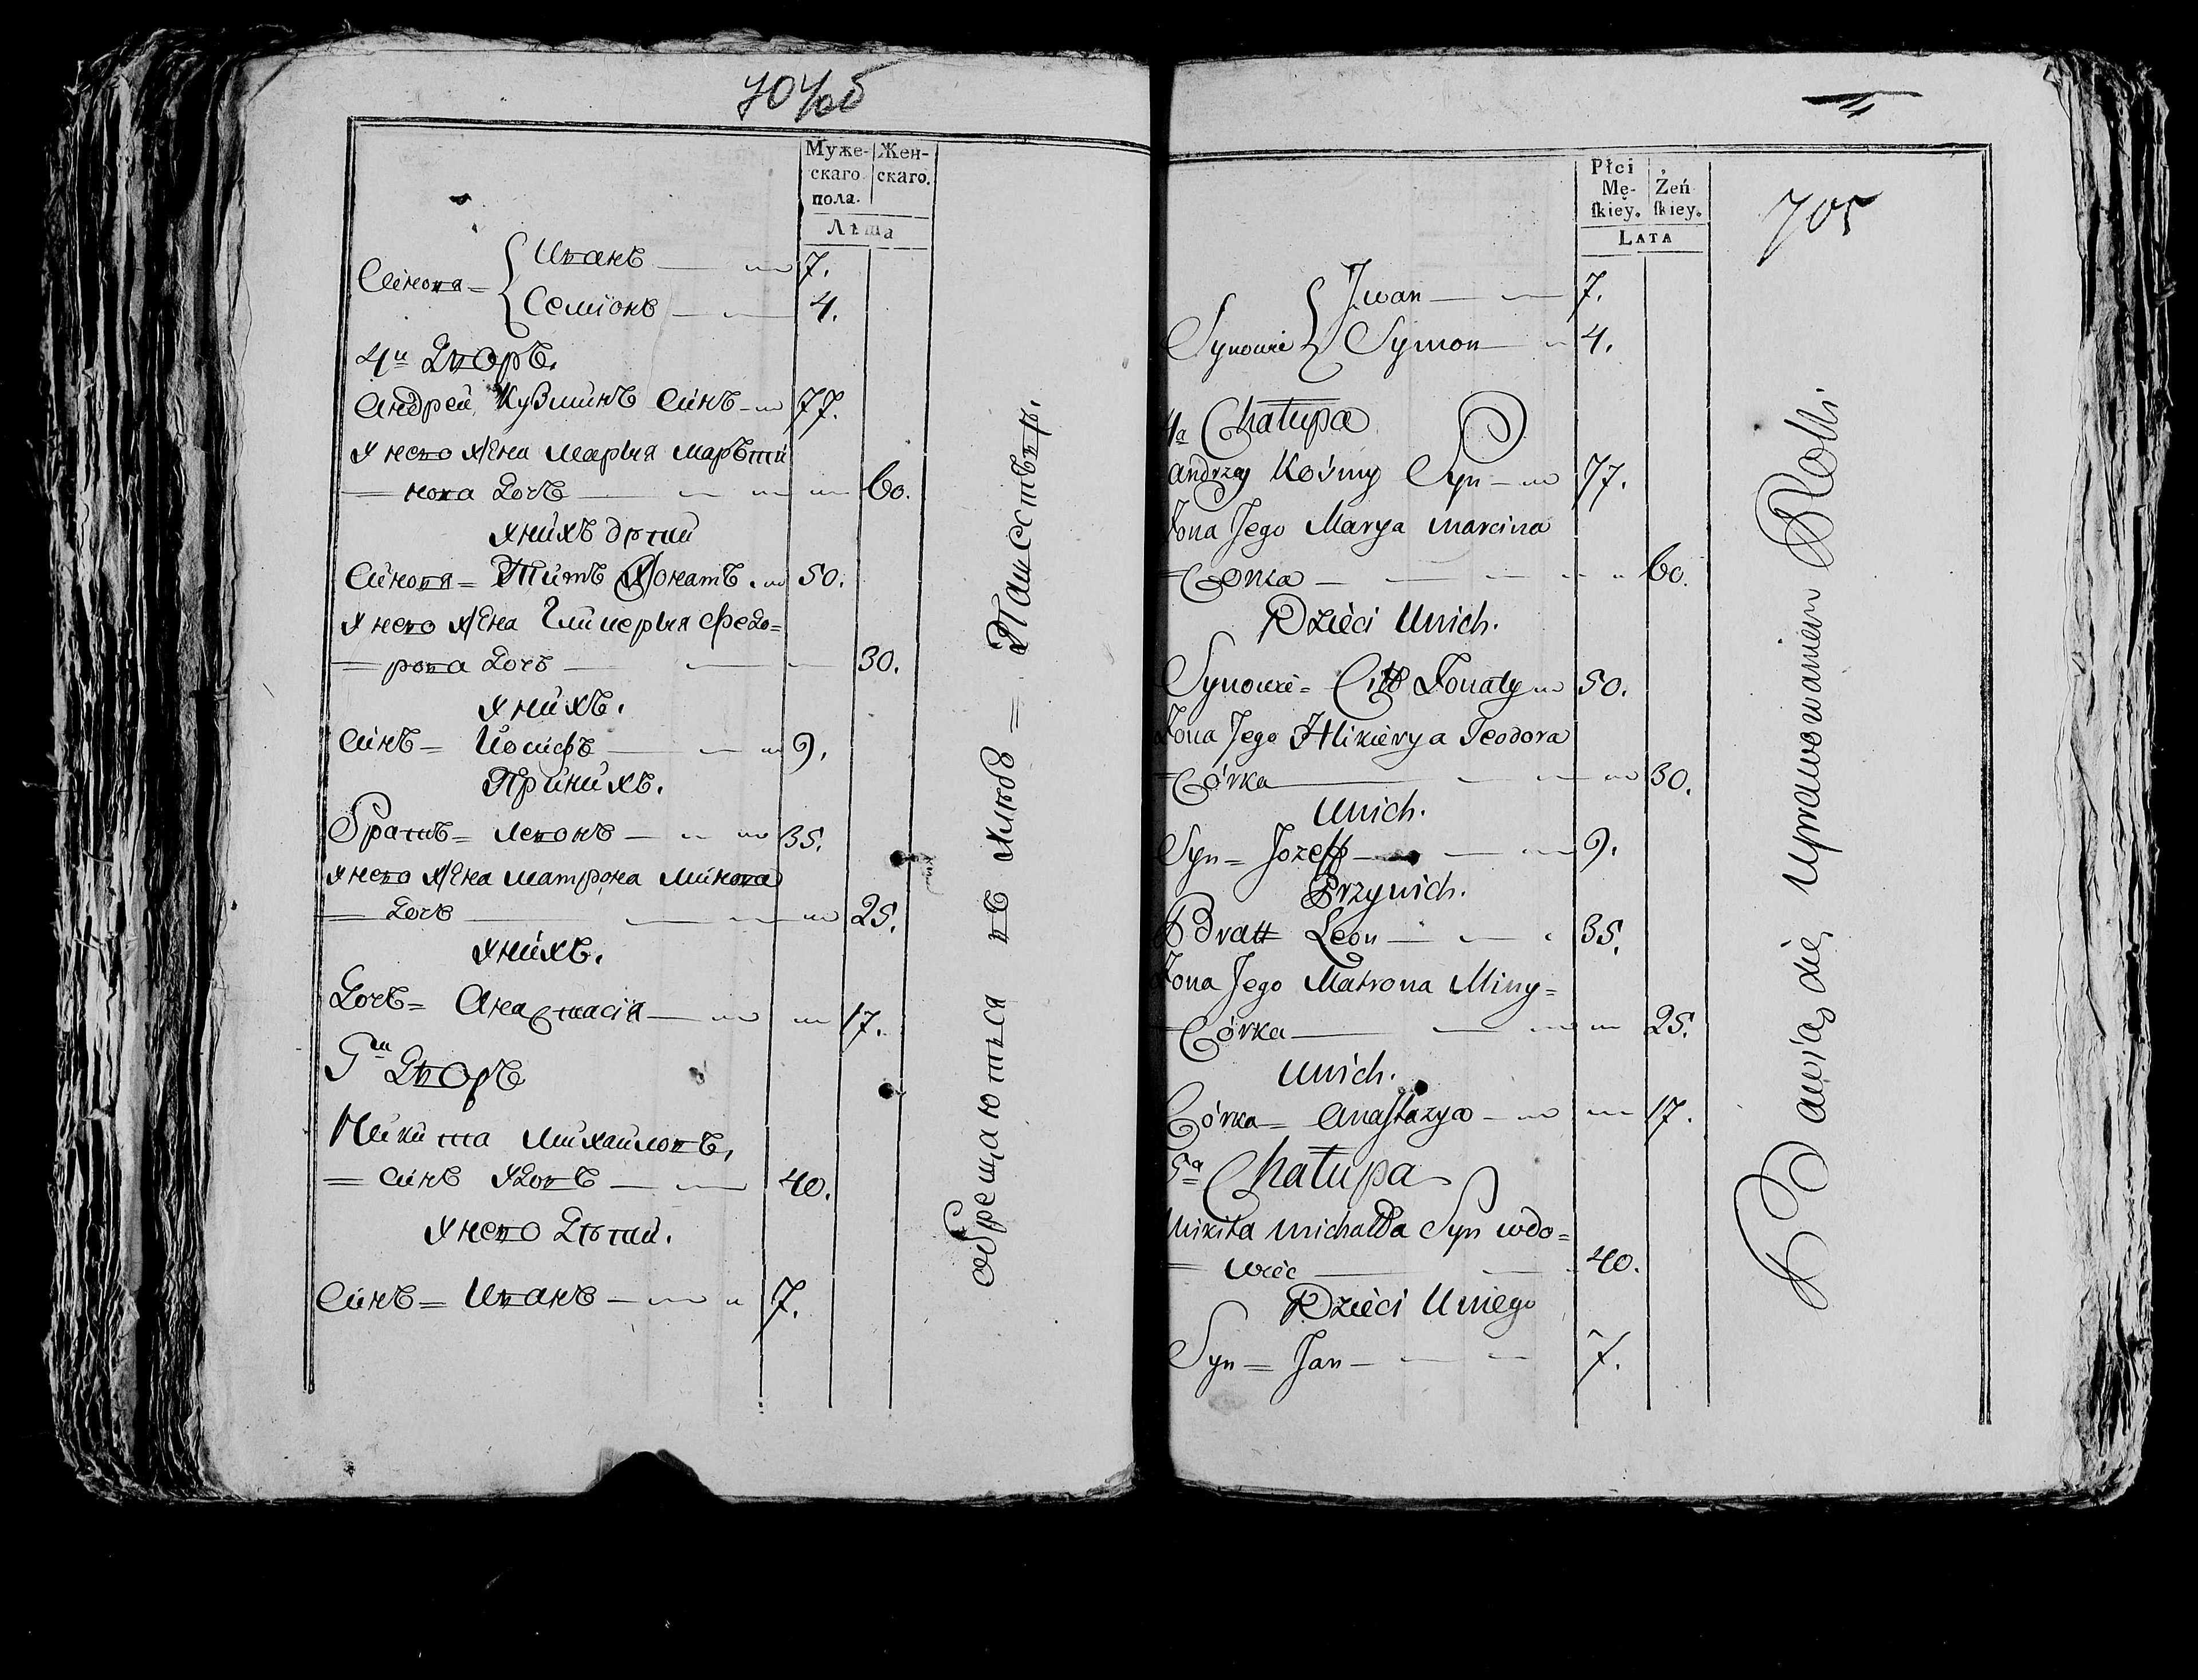 704об
Муже- Жен-
скаго скаго.
пола.
Лѣта
Синовя = Иванъ 7.
Семіонъ 4.
4й Дворъ.
Андрей Кузминъ Синъ 77.
У него жена Марья Маръти
= нова Дочь 60.
У нихъ дѣти
Синовя = Титъ Донатъ. 50.
У него жена Гликерья Федо=
= рова Дочь 30.
У нихъ.
Синъ = Йосифъ 9.
При нихъ.
Братъ = Левонъ 35.
У него жена Матрона Минова
= Дочь 25.
У нихъ.
Дочь = Анастасія 17.
5й Дворъ
Никита Михайловъ,
= Синъ Удовъ 40.
У него Дѣти.
Синъ = Иванъ 7.
обрещаються въ хлѣбо = Пашествѣ.
705
Płci
Mę- Żeń
skiey. skiey.
LATA
Synowie Jwan 7.
Symon 4.
4a Chałupa
Andrzey Koźmy Syn 77.
Żona Jego Marya Marcina
= Corka 60.
Dzieci Unich.
Synowie = Titt Donaty 50.
Żona Jego Hlikierya Teodora
= Córka 30.
Unich.
Syn = Jozeff 9.
Przynich.
Bratt Leon 35.
Żona Jego Matrona Miny=
Córka 25.
Unich.
Córka = Anastazya 17.
5a Chałupa
Mikita Michałła Syn wdo=
= wiec 40.
Dzieci Uniego
Syn = Jan 7.
Bawią się Uprawowaniem Rolli